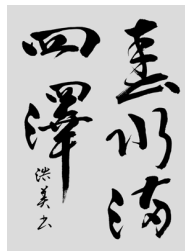 春水满
四澤
洪美书